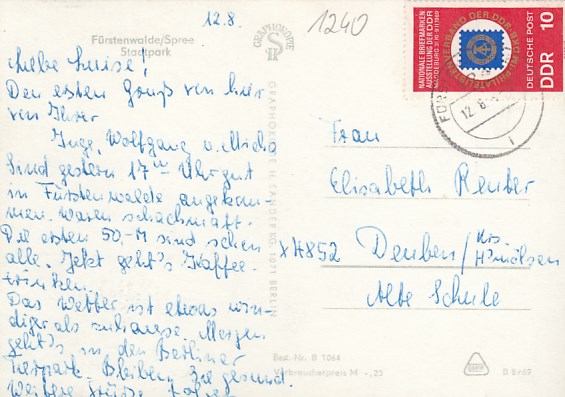 12.8.
1240
Fürstenwalde/Spree
Stadtpark
Liebe Luise!
Den ersten Gruß von hier
von Ihrer
Inge, Wolfgang u. Micha
Sind gestern 17 Uhr gut
in Fürstenwalde angekom-
men. Waren schachmatt.
Die ersten 50,-M sind schon
alle. Jetzt geht's Kaffee-
trinken.
Das Wetter ist etwas win-
diger als zuhause. Morgen
geht's in den Berliner
Tierpark. Bleiben Sie gesund.
Weitere Grüße
GRAPHOKOPIE
GRAPHOKOPIE H. SANDER KG, 1071 BERLIN
NATIONALE BRIEFMARKEN-
AUSSTELLUNG DER DDR
PHILATELISTENVERBAND DER DDR
DEUTSCHE POST
DDR 10
12.8.
Frau
Elisabeth Reuter
x 4852 Deuben/Krs.
Alte Schule
Best.-Nr. B 1064
Verbraucherpreis M -,25
B 8/69